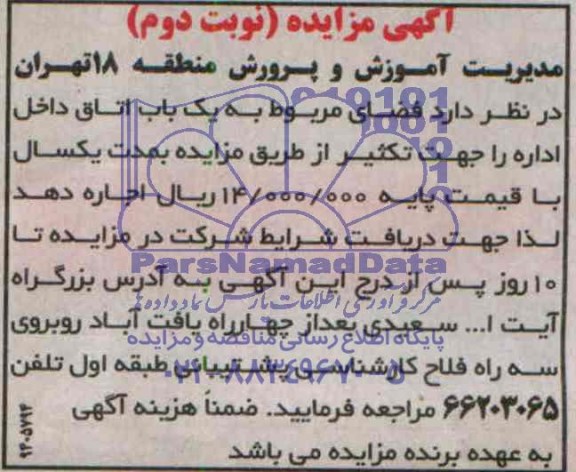 آگهی مزایده (نوبت دوم)
مدیریت آموزش و پرورش منطقه ۱۸تهران
در نظر دارد فضای مربوط به یک باب اتاق داخل
اداره را جهت تکثیر از طریق مزایده بمدت یکسال
با قیمت پایه ۱۴/۰۰۰/۰۰۰ریال اجاره دهد
لذا جهت دریافت شرایط شرکت در مزایده تا
۱۰روز پس از درج این آگهی به آدرس بزرگراه
آیت ا... سعیدی بعداز چهارراه یافت آباد روبروی
سه راه فلاح کارشناسی پشتیبانی طبقه اول تلفن
۶۶۲۰۳۰۶۵ مراجعه فرمایید. ضمناً هزینه آگهی
به عهده برنده مزایده می باشد
ParsNamadData
مرکز فرآوری اطلاعات پارس نماد داده ها
پایگاه اطلاع رسانی مناقصه ومزایده
۰۲۱-۸۸۳۴۹۶۷۰-۵